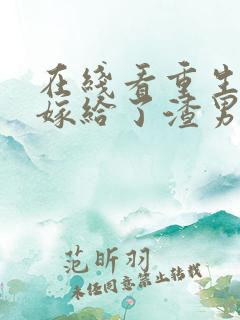 在线看重生
嫁给了渣男
范昕羽
未经同意禁止转载